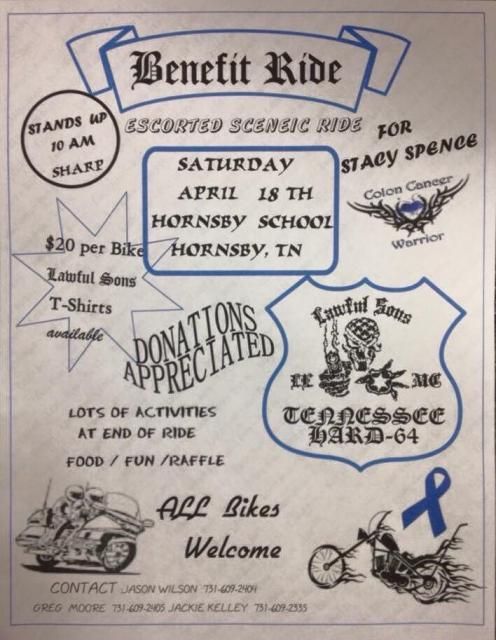 Benefit Ride
ESCORTED SCENEIC RIDE
STANDS UP
10 AM
SHARP
FOR
STACY SPENCE
SATURDAY
APRIL 18 TH
HORNSBY SCHOOL
HORNSBY, TN
Colon Cancer
Warrior
$20 per Bike
Lawful Sons
T-Shirts
available
DONATIONS
APPRECIATED
Lawful Sons
LE MC
TENNESSEE
HARD-64
LOTS OF ACTIVITIES
AT END OF RIDE
FOOD / FUN /RAFFLE
ALL Bikes
Welcome
CONTACT JASON WILSON 731-609-2404
GREG MOORE 731-609-2405 JACKIE KELLEY 731-609-2335